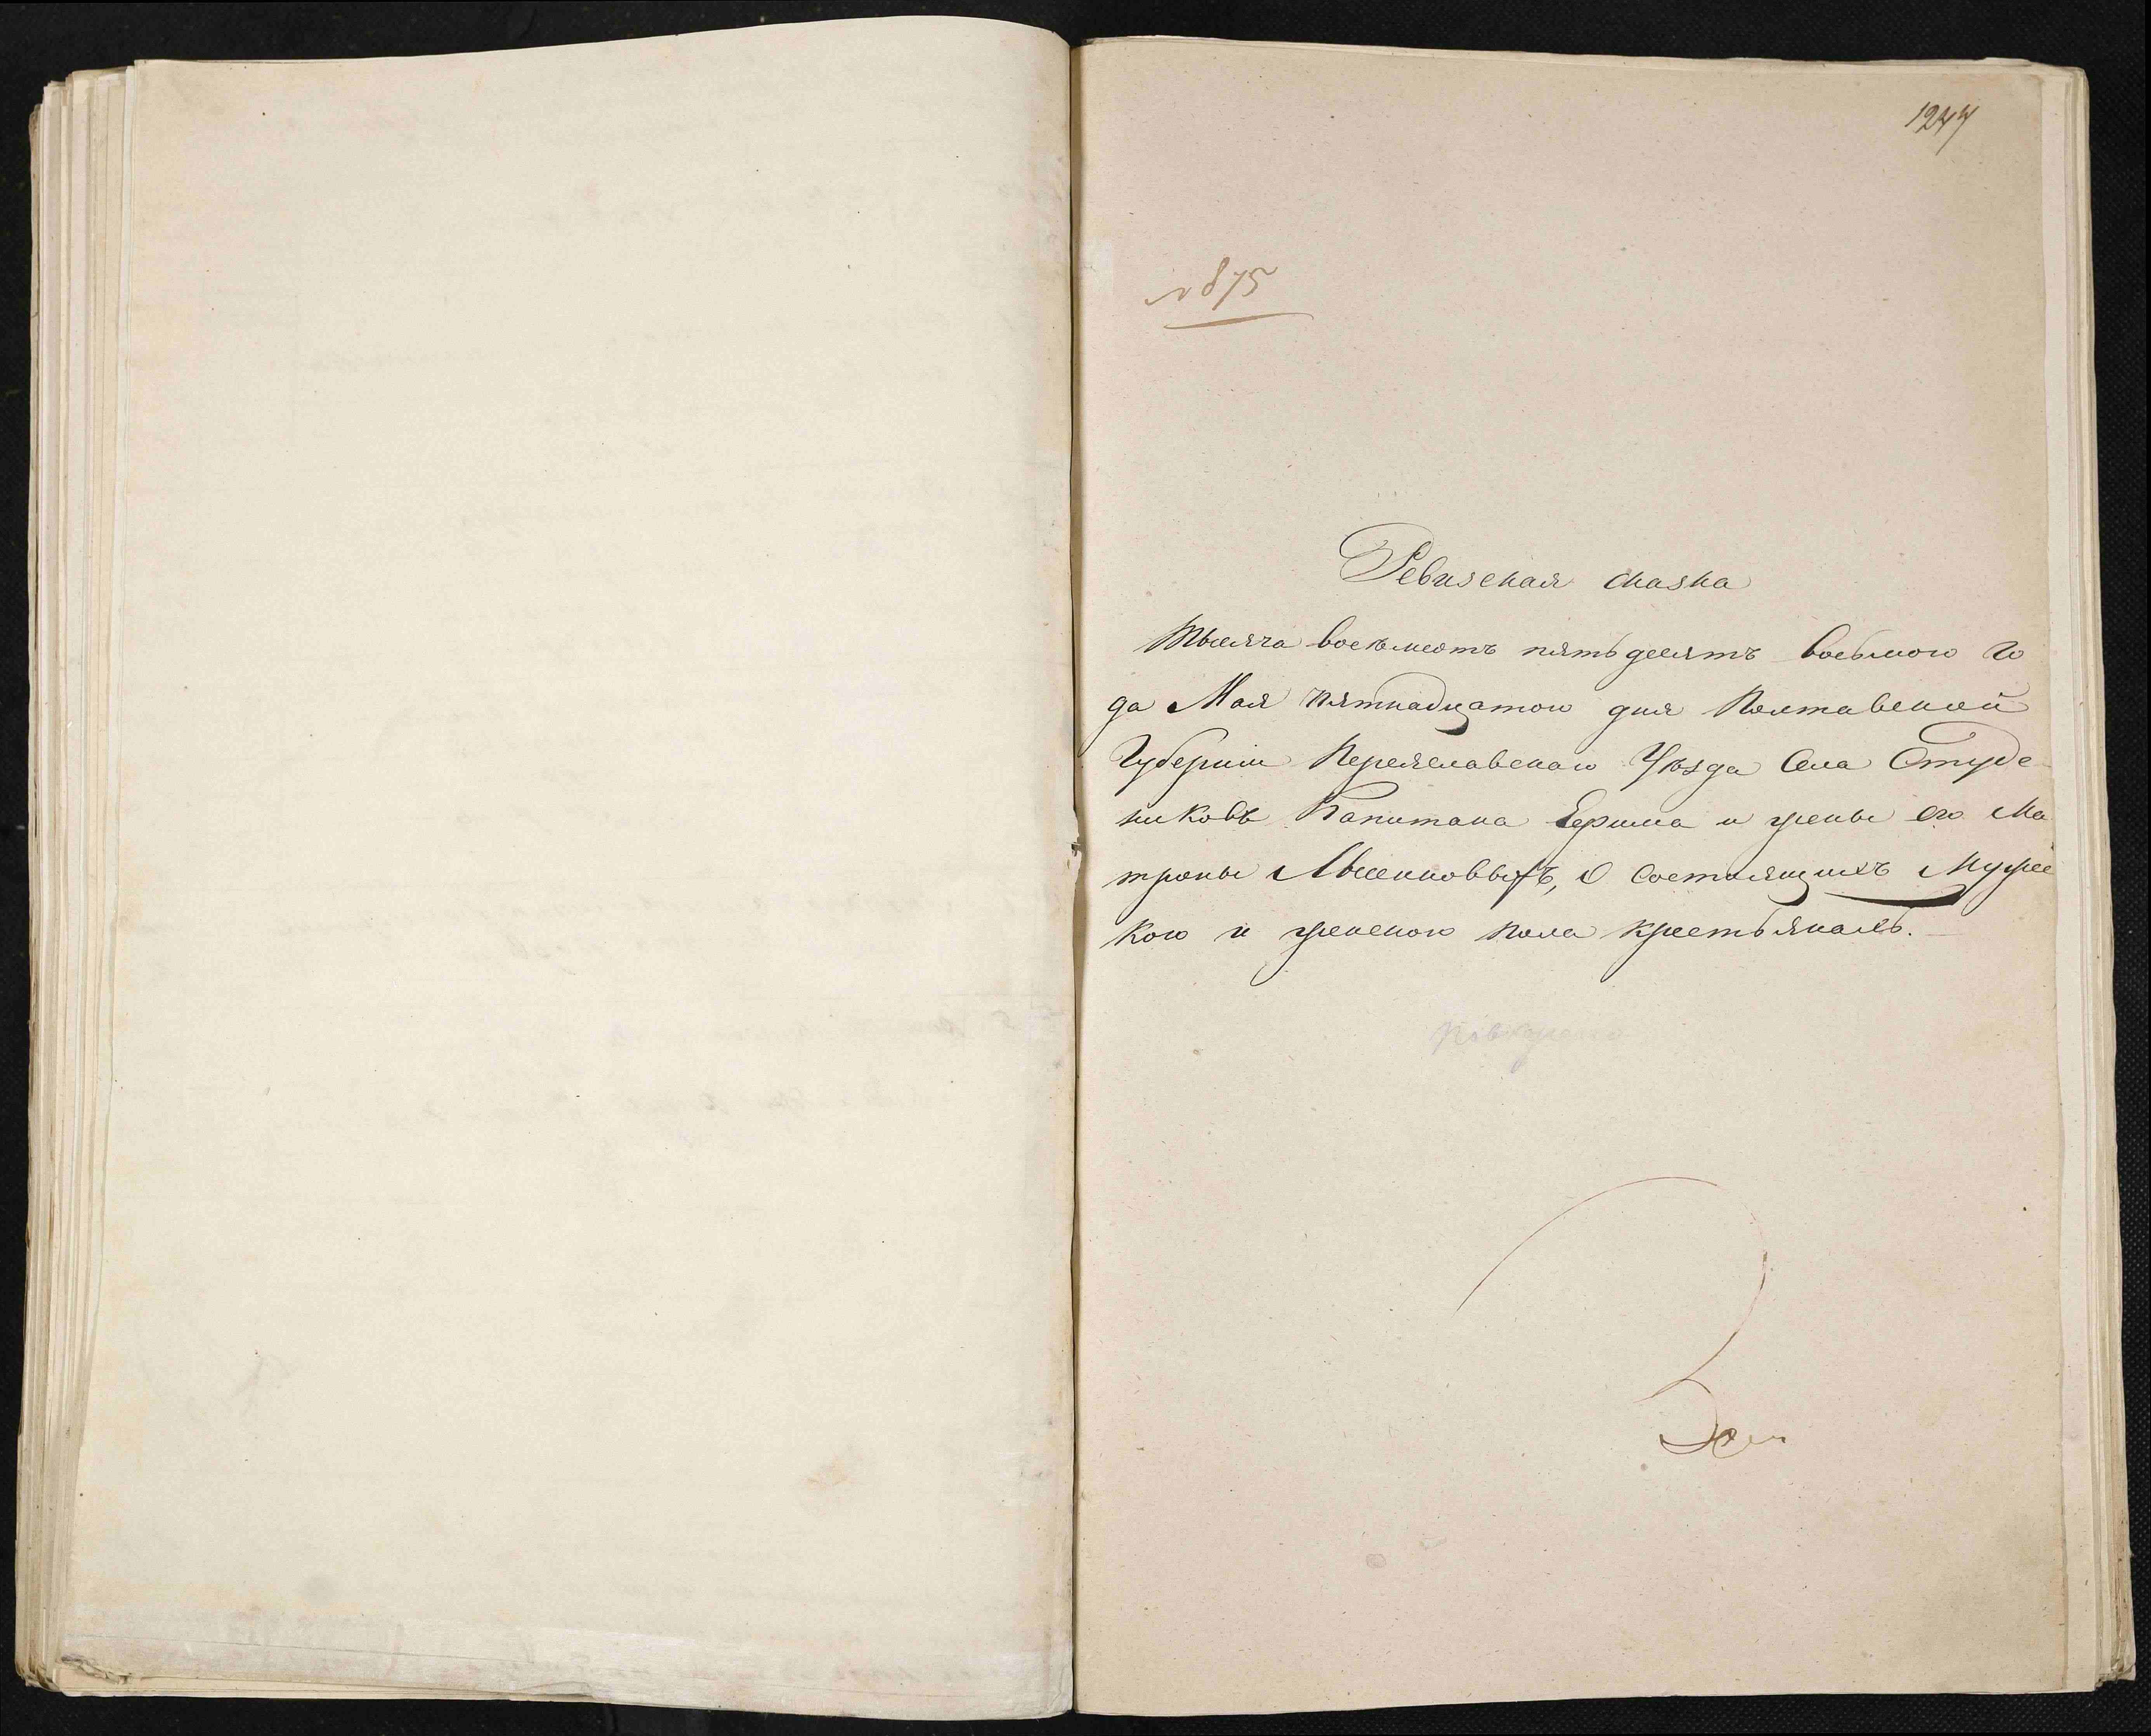 1277
№ 875
Ревизская сказка
Тысяча восемьсотъ пятьдесятъ восьмого го
да Мая пятнадцатого дня Полтавской
Губернии Переяславскаго Уѣзда Села Студе-
никовъ Капитана Ефима и жены его Ма
троны Лысенковыхъ, О состоящихъ Мужес
кого и женского пола крестьянахъ.